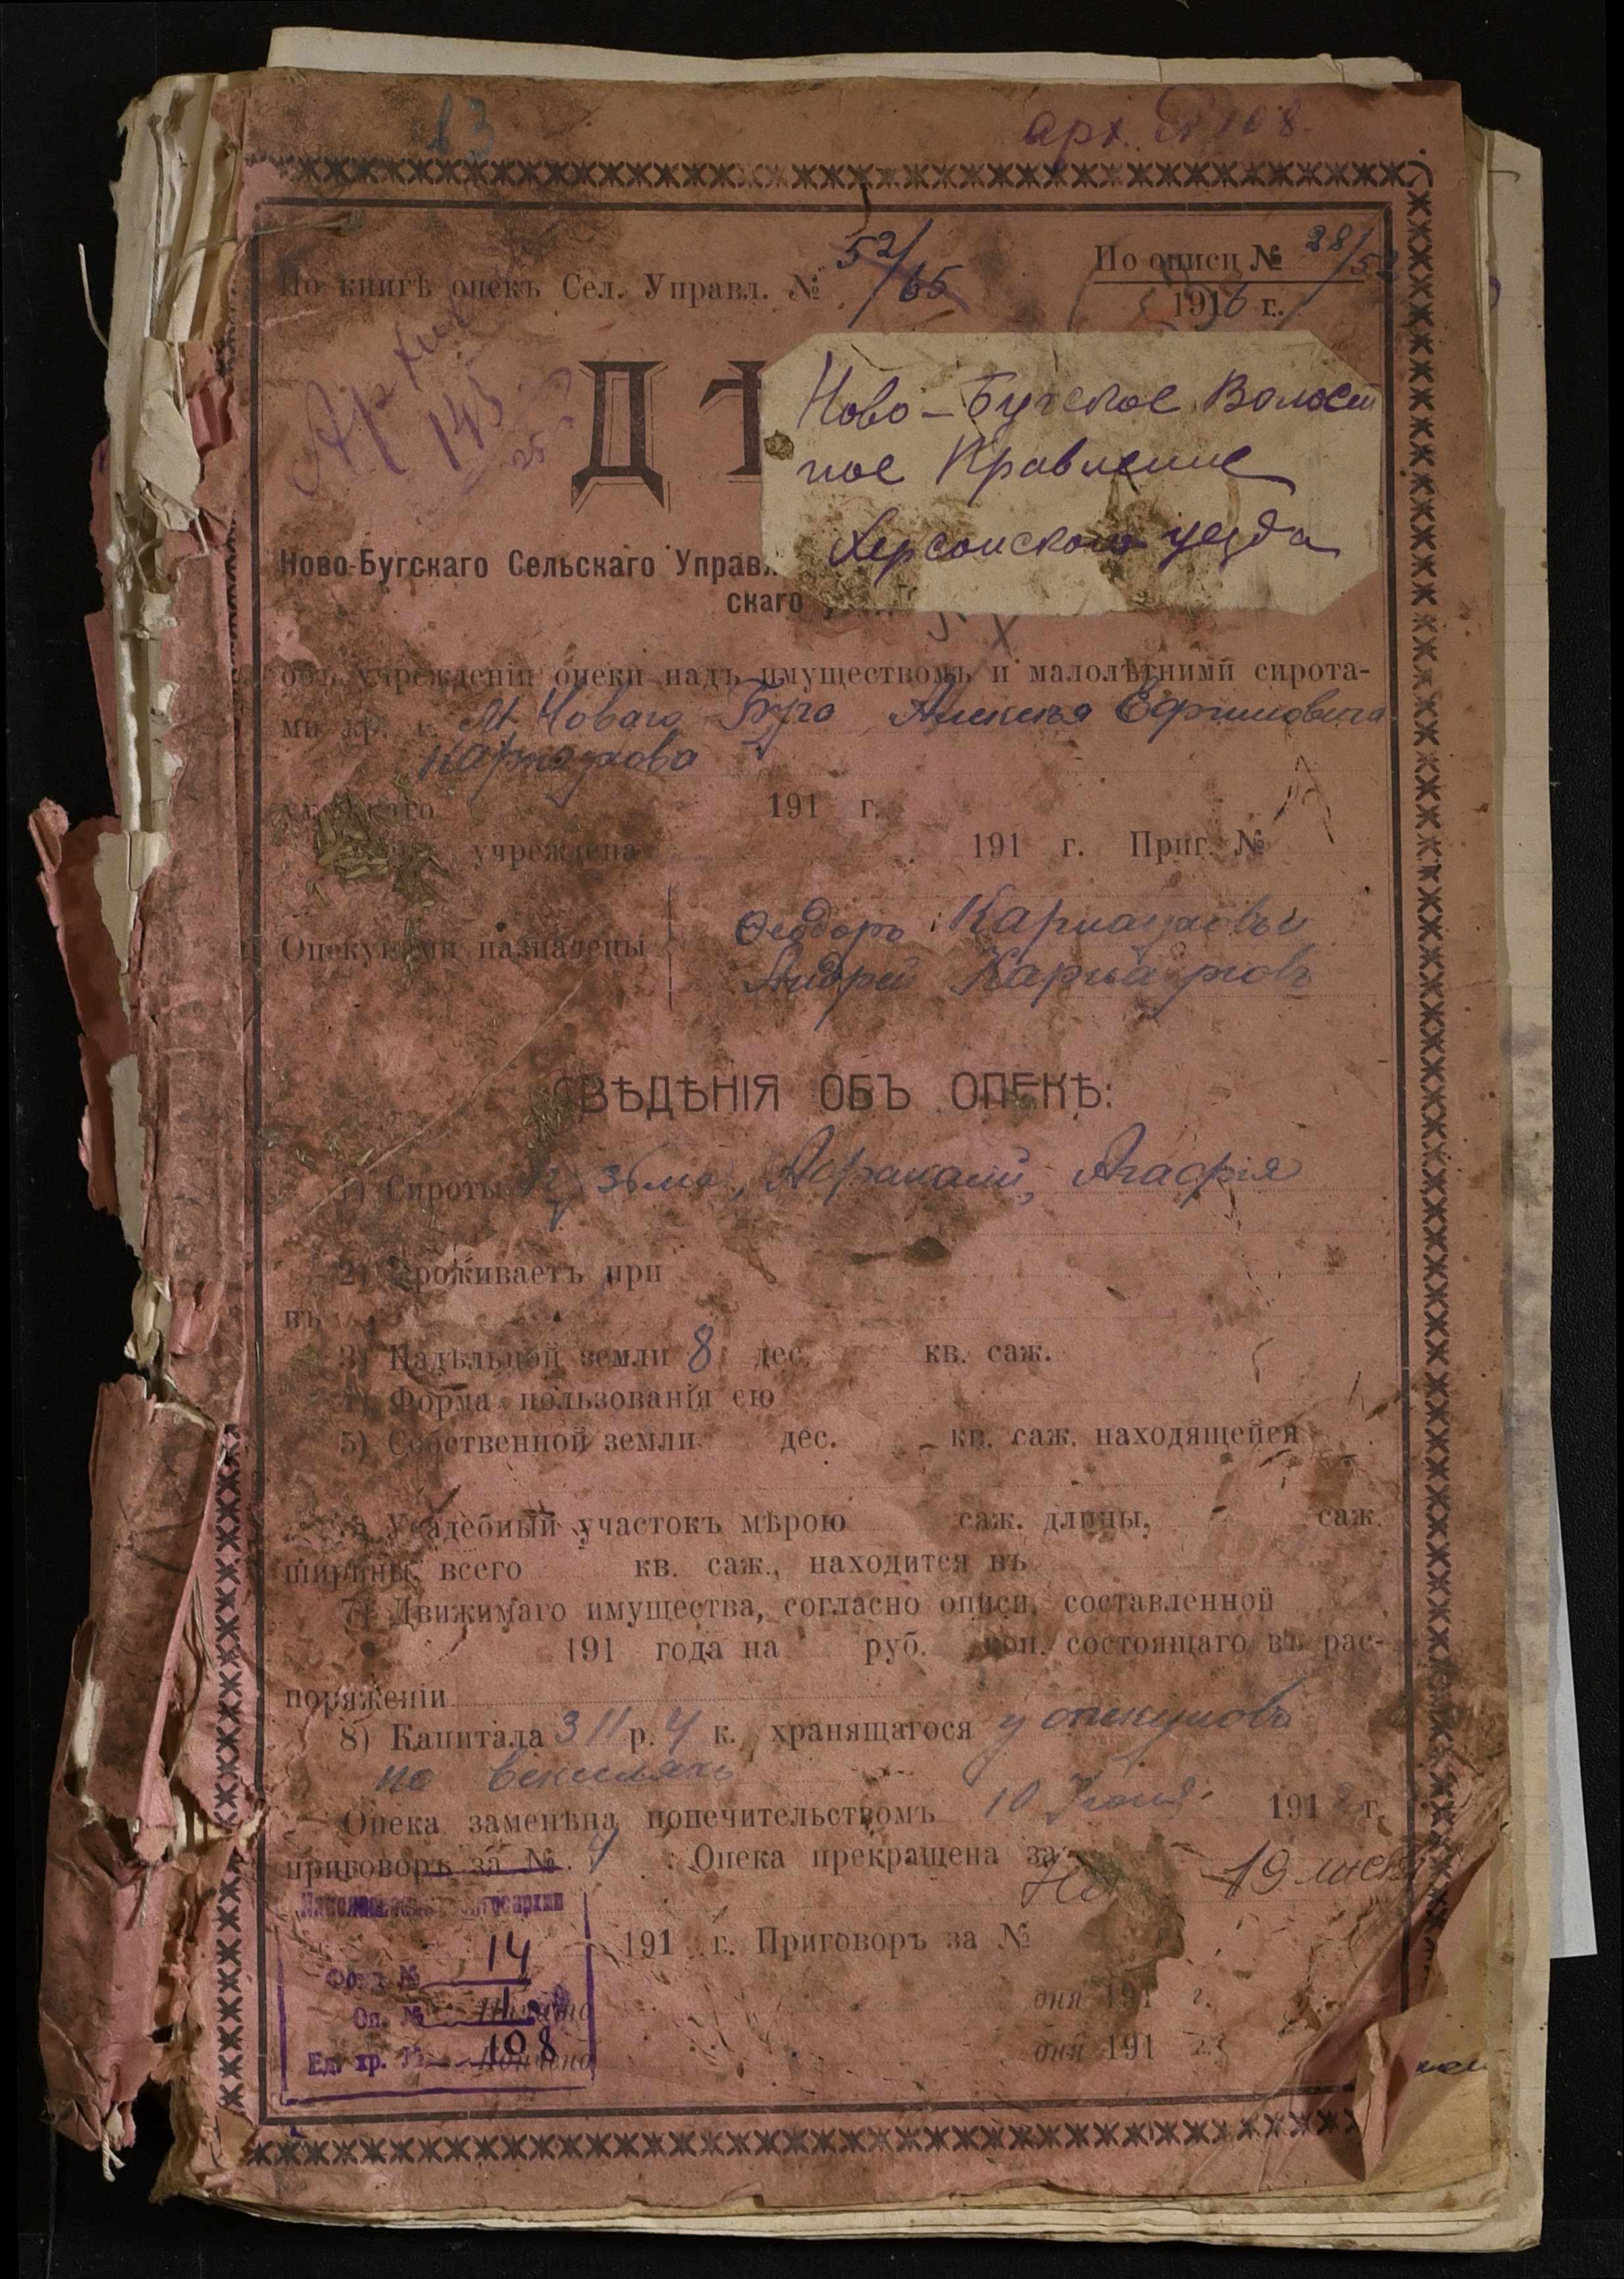 в3
арх. № 108.
По книгѣ опекъ Сел. Управл. № 52/65
По описи № 28/52
1916 г.
Архив
143
25
ДѢ
Ново-Бугское Волост
ное Правление
Херсонского уезда
Ново-Бугскаго Сельскаго Управл
скаго
объ учрежденіи опеки надъ имуществомъ и малолѣтними сирота-
ми кр. с. М. Новаго Буга Алексѣя Ефимовича
Карнаухова
умершаго 191 г.
учреждена 191 г. Приг. №
Опекунами назначены
Ѳеодоръ Карнауховъ и
Андрей Карнауховъ
СВѢДѢНІЯ ОБЪ ОПЕКѢ:
1) Сироты Кузьма, Афанасій, Агафія
2) Проживаетъ при
въ
3) Надѣльной земли 8 дес. кв. саж.
4) Форма пользованія ею
5) Собственной земли дес. кв. саж. находящейся
6) Усадебный участокъ мѣрою саж. длины, саж.
ширины, всего кв. саж., находится въ
7) Движимаго имущества, согласно описи, составленной
191 года на руб. коп. состоящаго въ рас-
поряженіи
8) Капитала 311 р. 4 к. хранящагося у опекуновъ
по векселямъ
Опека замѣнена попечительствомъ 10 Іюня 191 г.
приговоръ за № 4 Опека прекращена за
На 19 листа
191 г. Приговоръ за №
госархив
Фонд № 14
Оп. № 1
Начато дня 191 г.
Ед. хр. № 108
Кончено дня 191 г.